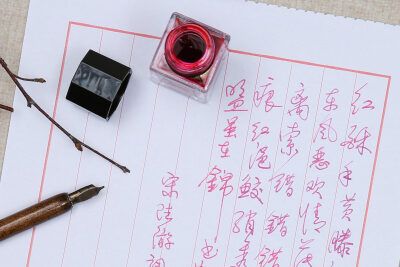 红酥手黄縢
东风恶欢情薄
离索错错错
痕红浥鲛绡透
盟虽在锦书
宋陆游词